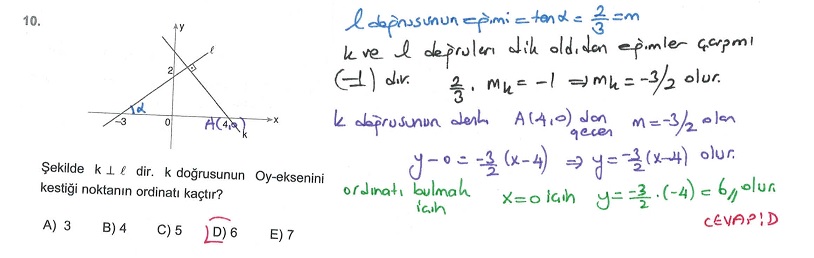 10.
y
ℓ
2
α
-3
0
A(4,0)
x
k
Şekilde k ⊥ ℓ dir. k doğrusunun Oy-eksenini
kestiği noktanın ordinatı kaçtır?
A) 3 B) 4 C) 5 D) 6 E) 7
ℓ doğrusunun eğimi = tanα = 2/3 = m
k ve ℓ doğruları dik old.dan eğimler çarpımı
(-1) dir. 2/3 . mk = -1 ⇒ mk = -3/2 olur.
k doğrusunun denk A(4,0) dan geçen m = -3/2 olan
y-0 = -3/2 (x-4) ⇒ y = -3/2 (x-4) olur.
ordinatı bulmak için x=0 için y = -3/2 . (-4) = 6,, olur.
CEVAP: D